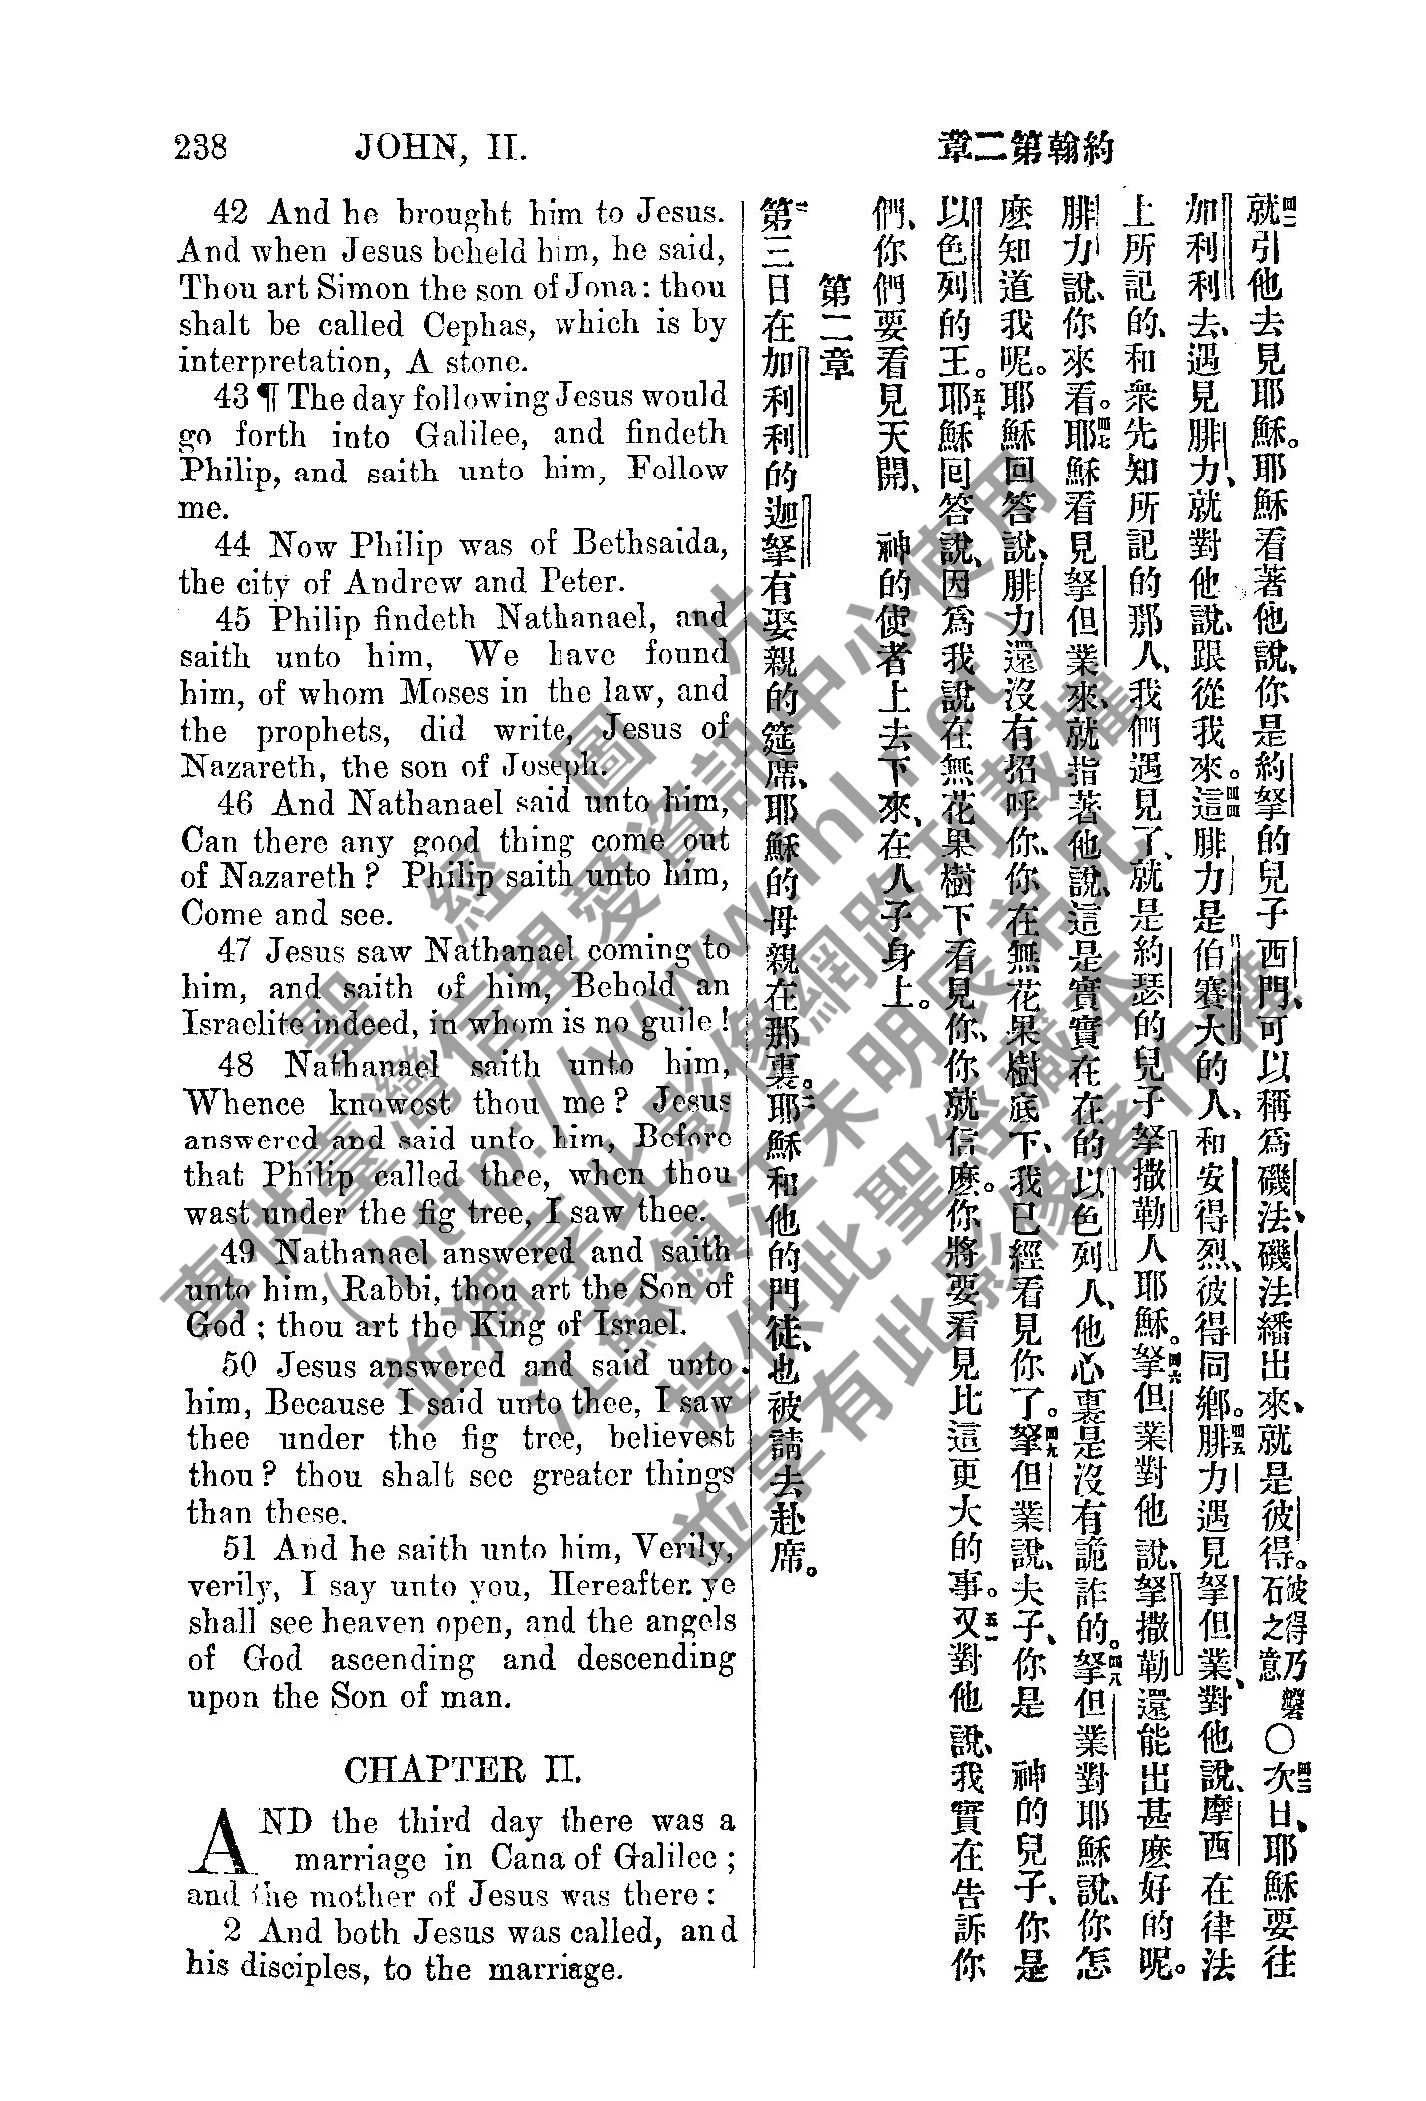 238 JOHN, II.
章二第翰約
42 And he brought him to Jesus.
And when Jesus beheld him, he said,
Thou art Simon the son of Jona: thou
shalt be called Cephas, which is by
interpretation, A stone.
43 ¶ The day following Jesus would
go forth into Galilee, and findeth
Philip, and saith unto him, Follow
me.
44 Now Philip was of Bethsaida,
the city of Andrew and Peter.
45 Philip findeth Nathanael, and
saith unto him, We have found
him, of whom Moses in the law, and
the prophets, did write, Jesus of
Nazareth, the son of Joseph.
46 And Nathanael said unto him,
Can there any good thing come out
of Nazareth? Philip saith unto him,
Come and see.
47 Jesus saw Nathanael coming to
him, and saith of him, Behold an
Israelite indeed, in whom is no guile!
48 Nathanael saith unto him,
Whence knowest thou me? Jesus
answered and said unto him, Before
that Philip called thee, when thou
wast under the fig tree, I saw thee.
49 Nathanael answered and saith
unto him, Rabbi, thou art the Son of
God; thou art the King of Israel.
50 Jesus answered and said unto
him, Because I said unto thee, I saw
thee under the fig tree, believest
thou? thou shalt see greater things
than these.
51 And he saith unto him, Verily,
verily, I say unto you, Hereafter ye
shall see heaven open, and the angels
of God ascending and descending
upon the Son of man.
CHAPTER II.
AND the third day there was a
marriage in Cana of Galilee;
and the mother of Jesus was there:
2 And both Jesus was called, and
his disciples, to the marriage.
四二就引他去見耶穌。耶穌看著他說、你是約拏的兒子西門、可以稱爲磯法、磯法繙出來、就是彼得。彼得乃磐石之意〇四三次日、耶穌要往
加利利去、遇見腓力、就對他說、跟從我來。四四這腓力是伯賽大的人、和安得烈、彼得同鄉。四五腓力遇見拏但業、對他說、摩西在律法
上所記的、和衆先知所記的那人、我們遇見了、就是約瑟的兒子拏撒勒人耶穌。四六拏但業對他說、拏撒勒還能出甚麽好的呢。
腓力說、你來看。四七耶穌看見拏但業來、就指著他說、這是實實在在的以色列人、他心裏是沒有詭詐的。四八拏但業對耶穌說、你怎
麽知道我呢。耶穌回答說、腓力還沒有招呼你、你在無花果樹底下、我已經看見你了。四九拏但業說、夫子、你是 神的兒子、你是
以色列的王。五十耶穌回答說、因爲我說在無花果樹下看見你、你就信麽。你將要看見比這更大的事。五一又對他說、我實在告訴你
們、你們要看見天開、 神的使者上去下來、在人子身上。
第二章
一第三日在加利利的迦拏有娶親的筵席、耶穌的母親在那裏。二耶穌和他的門徒、也被請去赴席。
聖經圖片
臺灣信望愛資訊中心使用
(http://www.fhl.net)
並獨享此影像網路刊載權
江蘇鎮江朱明民弟兄
提供此聖經藏本
並享有此影像著作權